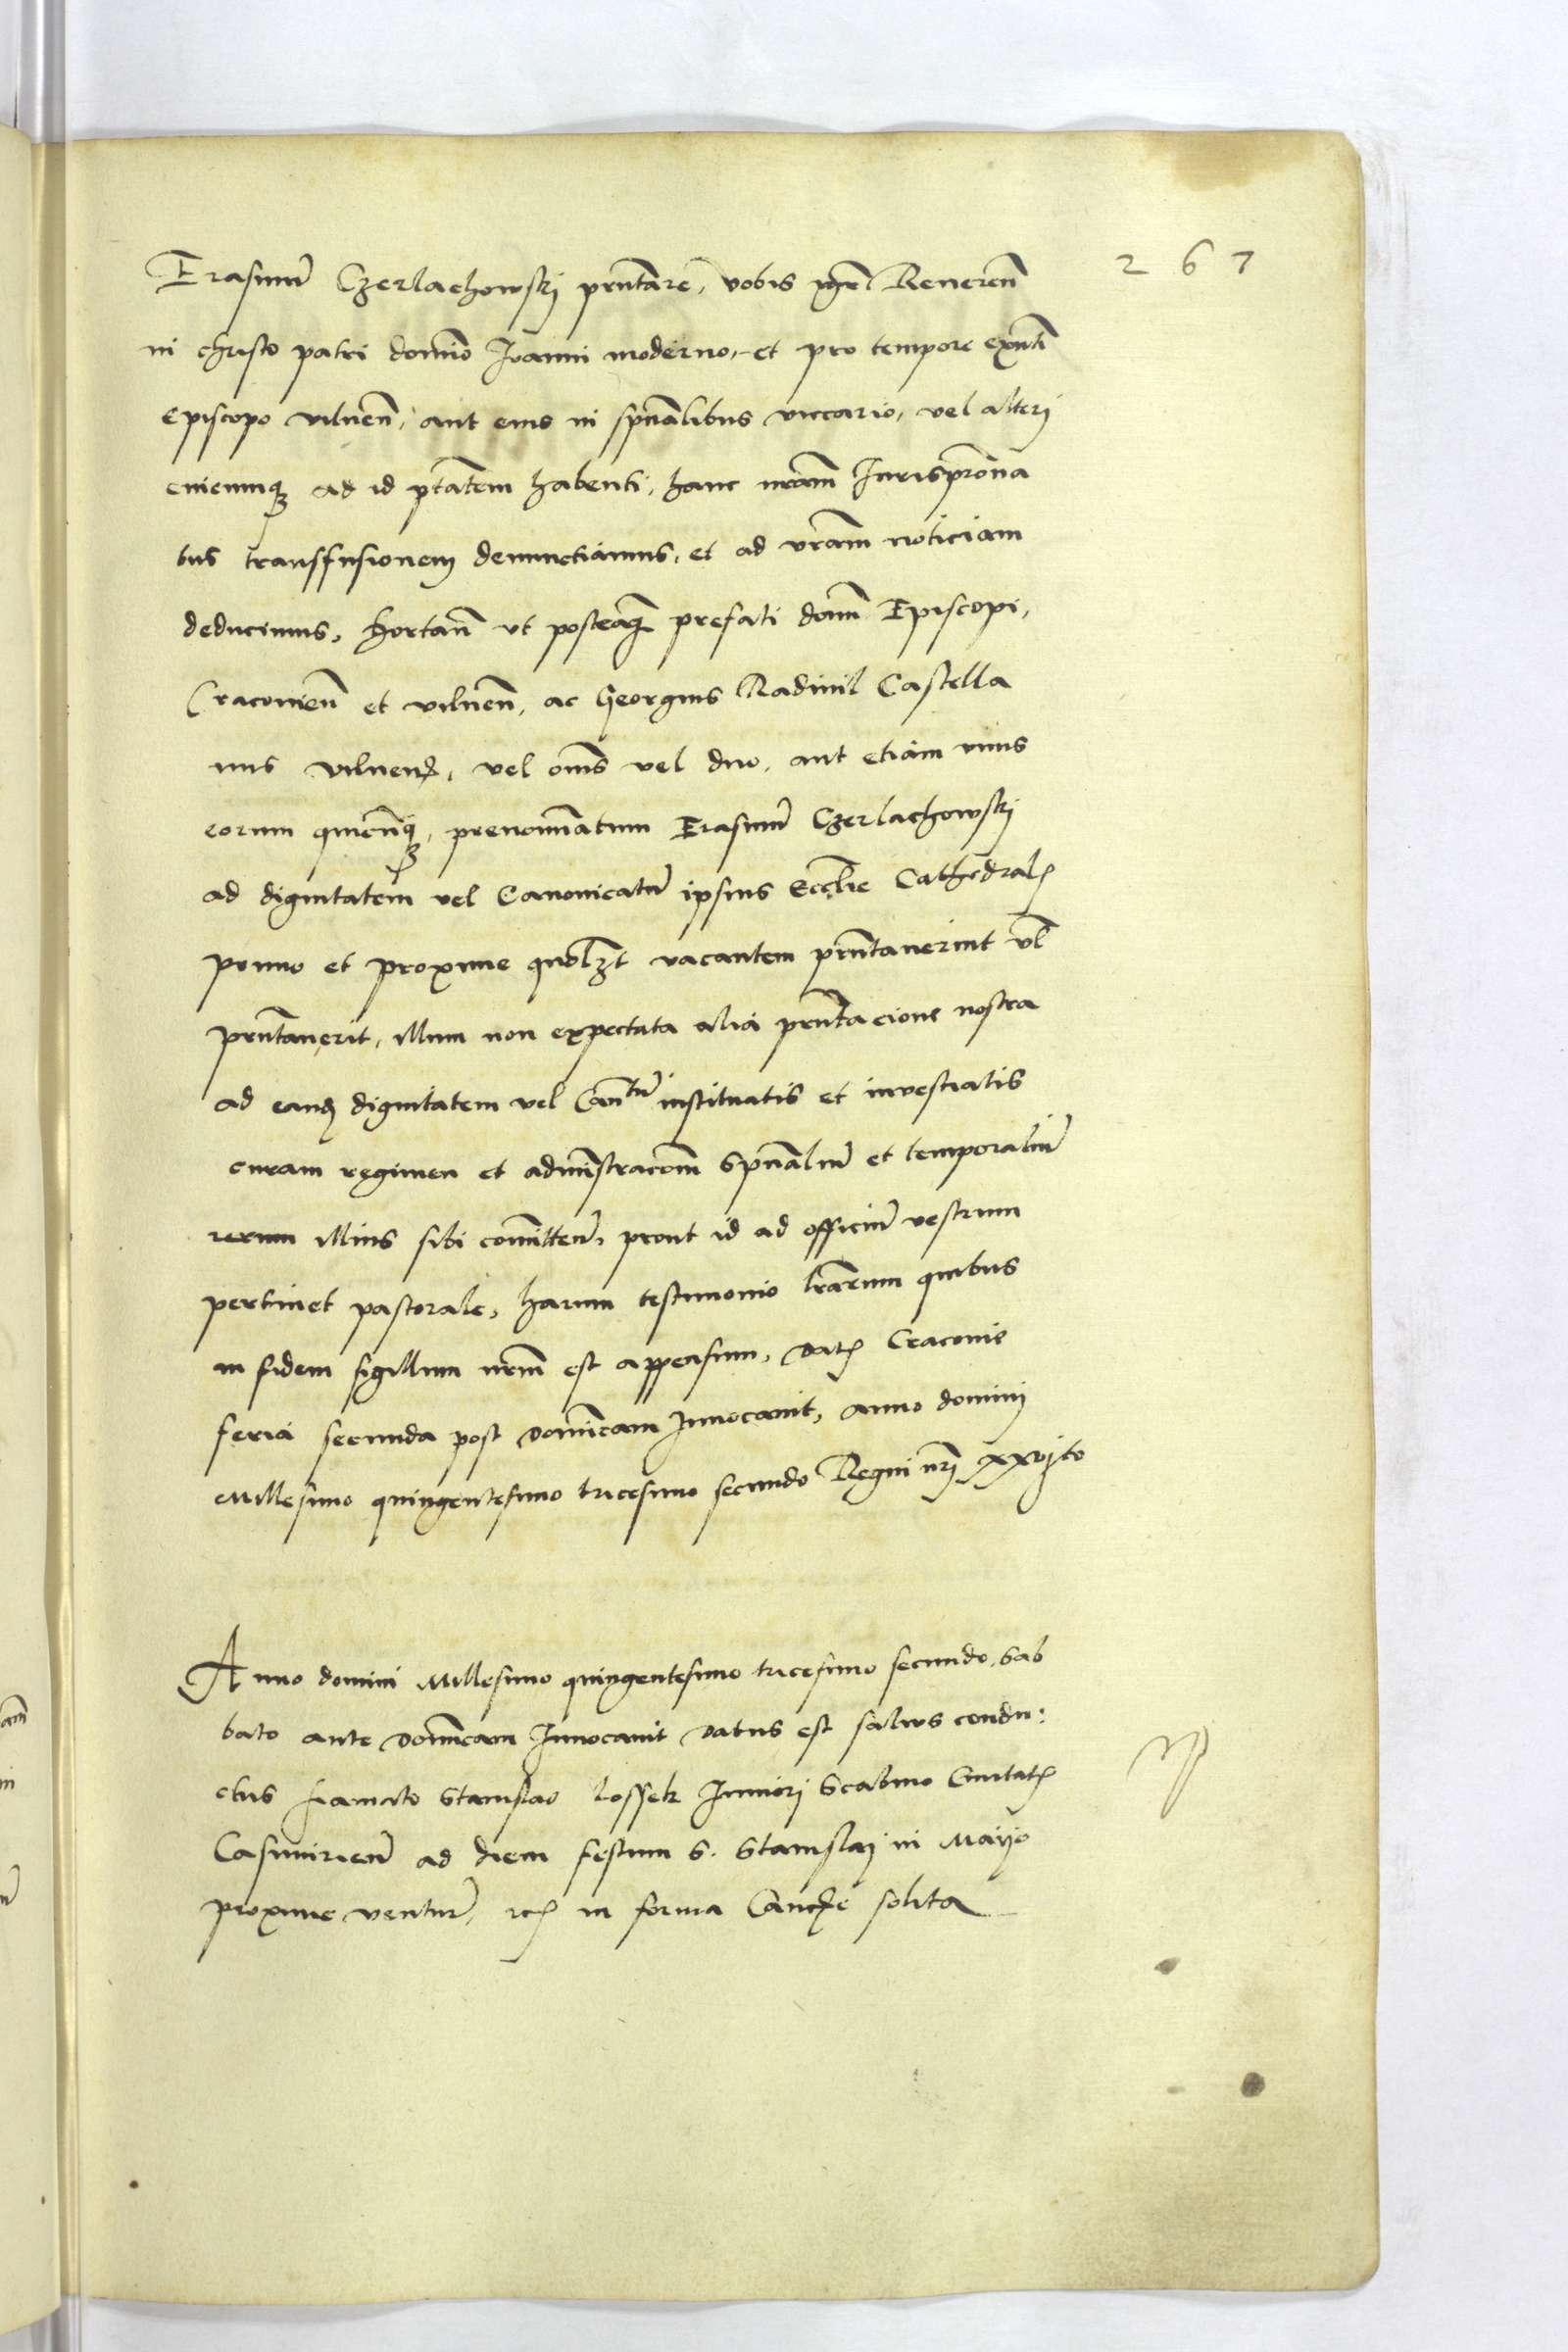 267
Erasmum Czerlachowskj pñtare, vobis igr̃ Reueren̄
in christo patri domĩo Joanni moderno, et pro tempore exñti
Episcopo vilnen̄, aut eius in spũalibus viccario, vel alterj
cuicumq3 ad id ptãtem habenti, hanc nr̃am Jurisprõna
tus transfusionem denunctiamus, et ad vr̃am noticiam
deducimus, hortan̄ vt posteaq̃ prefati domĩ Episcopi,
Cracouien̄ et vilnen̄, ac Georgius Radiuil Castella
nus vilnen̄, vel oms̃ vel duo, aut etiam vnus
eorum quicũq3, prenomĩatum Erasmum Czerlachowskj
ad dignitatem vel Canonicatũ ipsius Ecclĩe Cathedral
primo et proxime quolz̃t vacantem pñtauerint vl̃
pñtauerit, illum non expectata alia pñtacione nostra
ad eand dignitatem vel Can̄tũ instituatis et inuestiatis
curam regimen et admĩstracõm spũaliũ et temporaliũ
rerum illius sibi comĩtteñ, prout id ad officiũ vestrum
pertinet pastorale, harum testimonio lr̃arum quibus
in fidem sigillum nr̃m est appensum, Dat Cracouie
feria secunda post Domĩcam Inuocauit, anno dominj
Millesimo quingentesimo tricesimo secundo Regni nr̃j xxvjto
Anno domini Millesimo quingentesimo tricesimo secundo, Sab
bato ante Domĩcam Inuocauit Datus est saluus condu:
ctus famato Stanislao Lossek Juniorj Scabino Ciuitat
Casimirien̄ ad diem festum S. Stanislaj in Maijo
proxime ventur̃, etc in forma Canc̃e solita